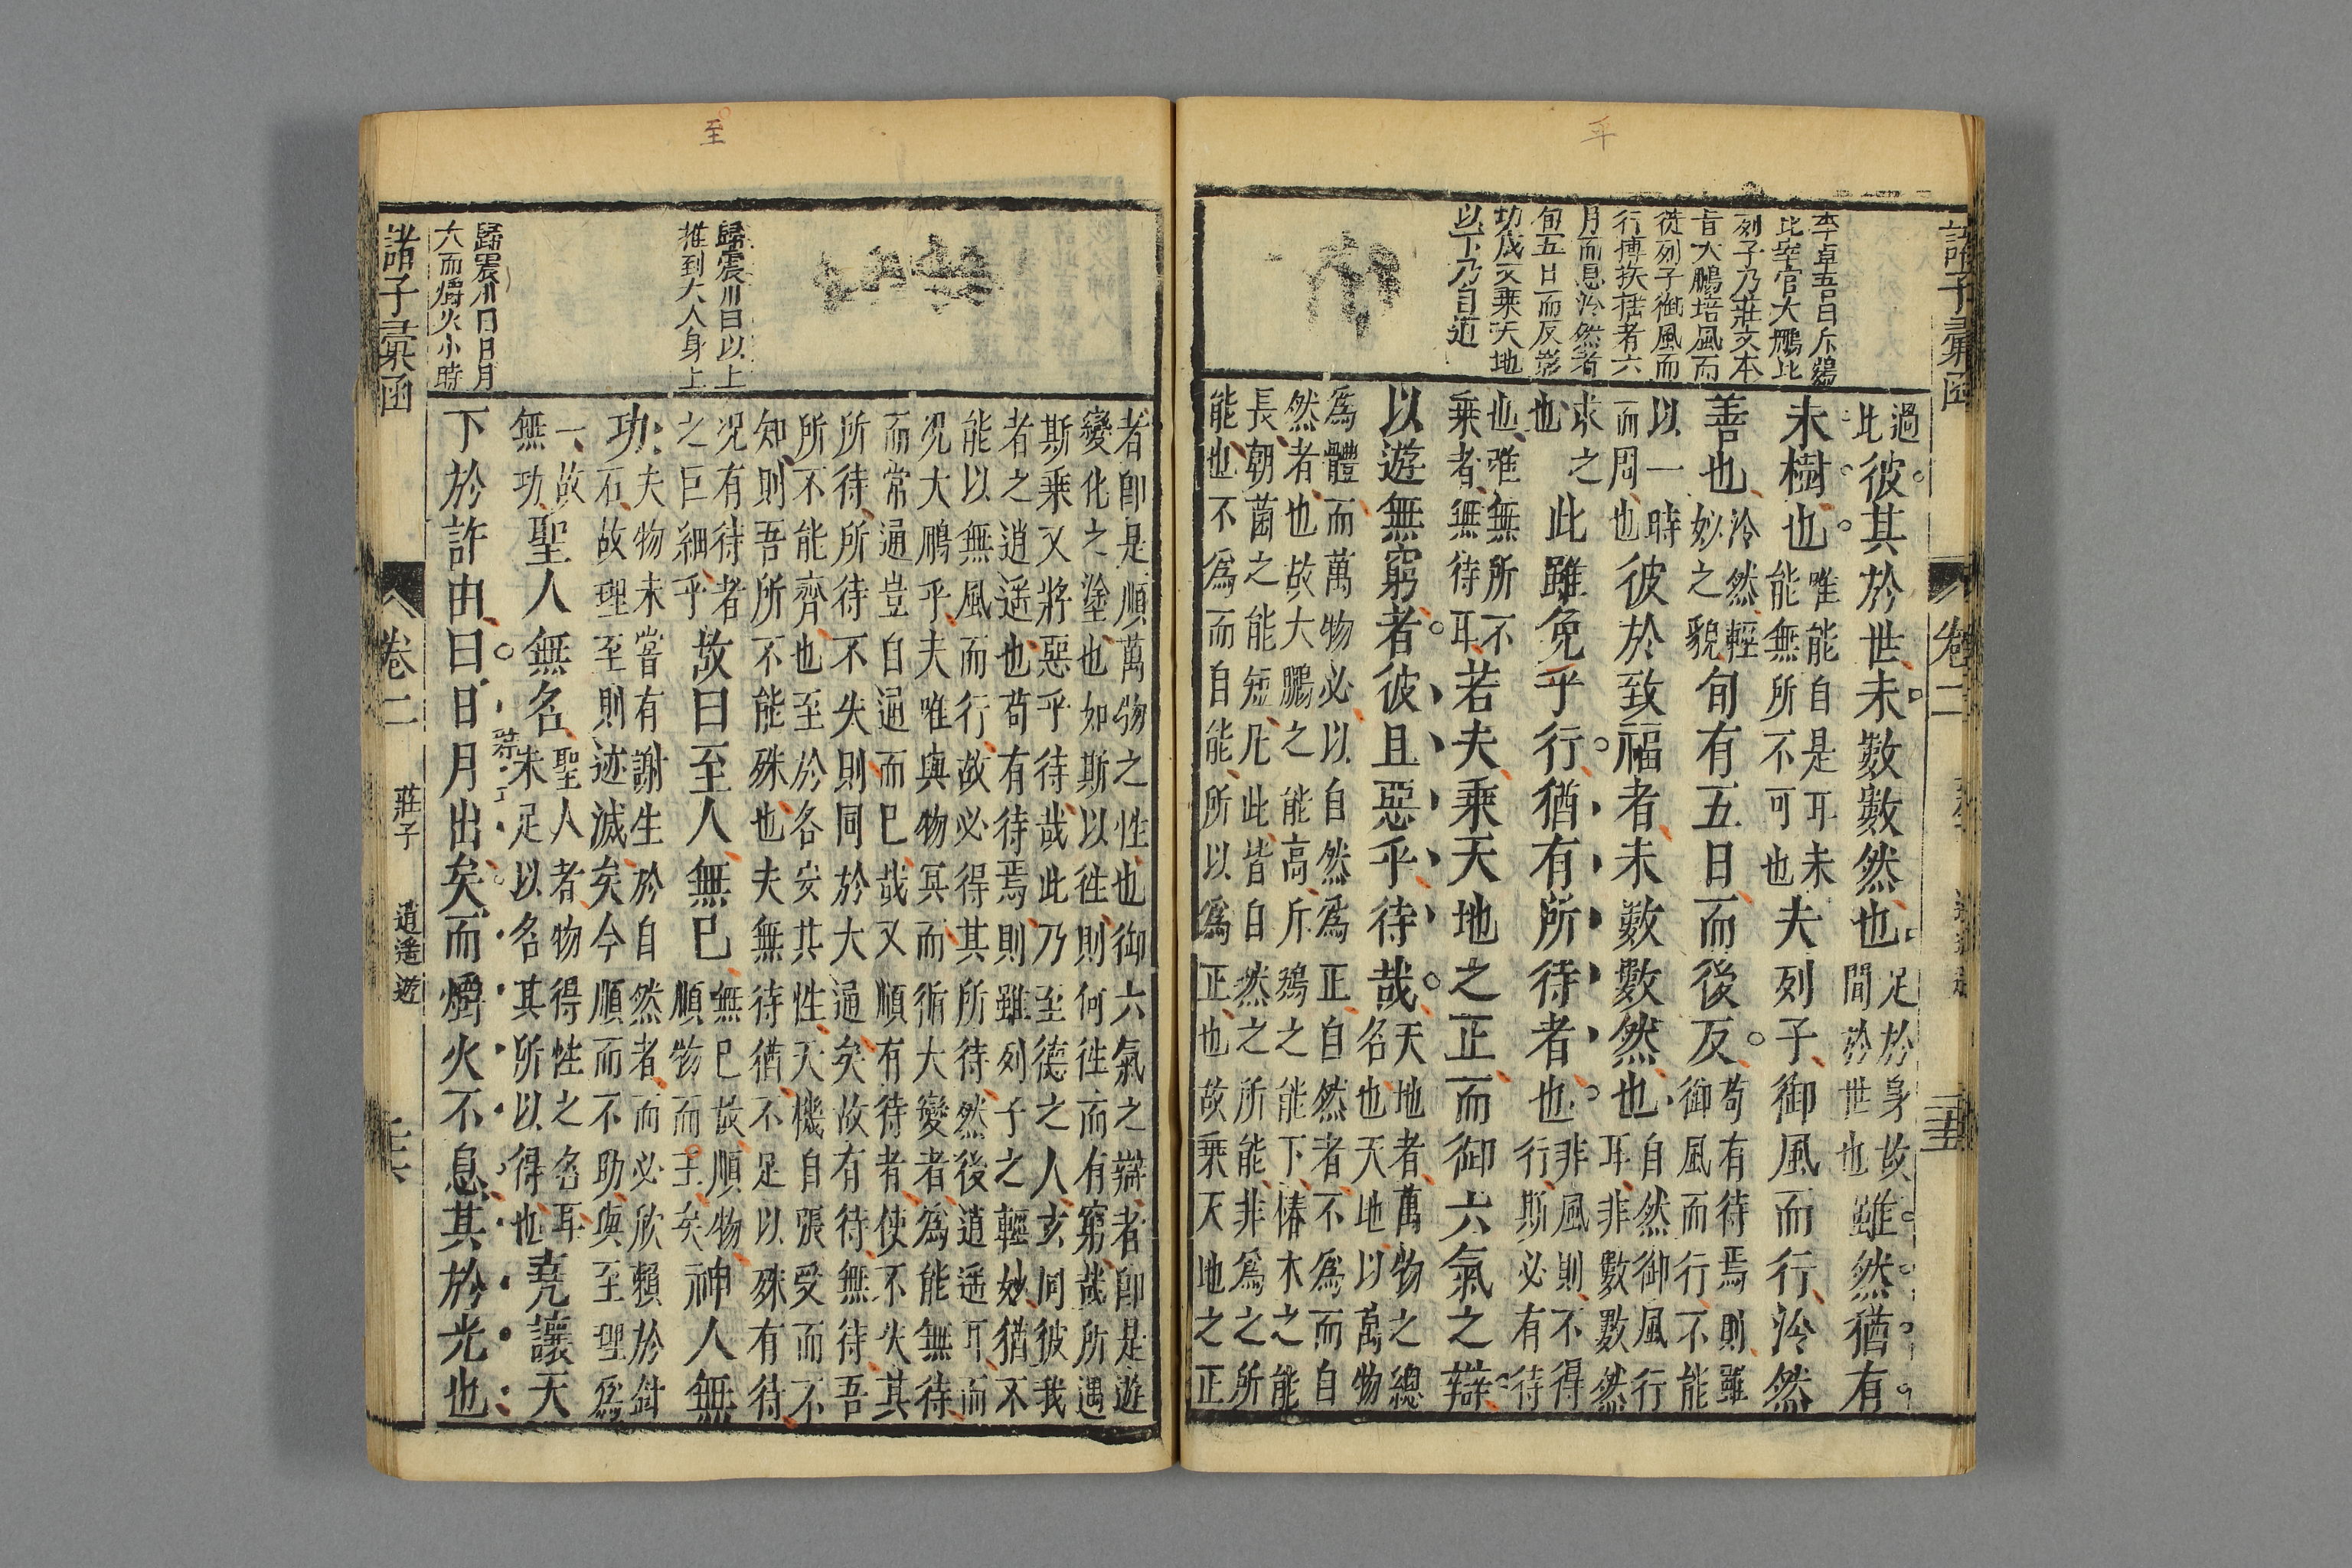 諸子彙函
卷二
二十五
李卓吾曰斥鷃
比宰官大鵬比
列子乃莊文本
旨大鵬培風而
徙列子御風而
行摶扶搖者六
月而息泠然者
旬五日而反彰
功成又乘天地
以下乃自道
過此彼其於世未數數然也足於身故間於世也雖然猶有
未樹也唯能自是耳未能無所不可也夫列子御風而行泠然
善也泠然輕妙之貌旬有五日而後反苟有待焉則雖御風而行不能
以一時而周也彼於致福者未數數然也自然御風行耳非數數然
求之也此雖免乎行猶有所待者也非風則不得行斯必有待
也唯無所不乘者無待耳若夫乘天地之正而御六氣之辯
以遊無窮者彼且惡乎待哉天地者萬物之總名也天地以萬物
為體而萬物必以自然為正自然者不為而自
然者也故大鵬之能高斥鴳之能下椿木之能
長朝菌之能短凡此皆自然之所能非為之所
能也不為而自能所以為正也故乘天地之正
至
歸震川曰以上
推到大人身上
歸震川曰日月
大而爝火小時
者卽是順萬物之性也御六氣之辯者卽是遊
變化之塗也如斯以徃則何徃而有窮哉所遇
斯乘又將惡乎待哉此乃至德之人玄同彼我
者之逍遙也苟有待焉則雖列子之輕妙猶不
能以無風而行故必得其所待然後逍遙耳而
況大鵬乎夫唯與物冥而循大變者為能無待
而常通豈自通而已哉又順有待者使不失其
所待所待不失則同於大通矣故有待無待吾
所不能齊也至於各安其性天機自張受而不
知則吾所不能殊也夫無待猶不足以殊有待
况有待者之巨細乎故曰至人無已無已故順物順物而王矣神人無
功夫物未嘗有謝生於自然者而必欣賴於針石故理至則迹滅矣今順而不助與至理為
一故無功聖人無名聖人者物得性之名耳未足以名其所以得也堯讓天
下於許由曰日月出矣而爝火不息其於光也
諸子彙函
卷二
莊子
逍遙遊
二十六